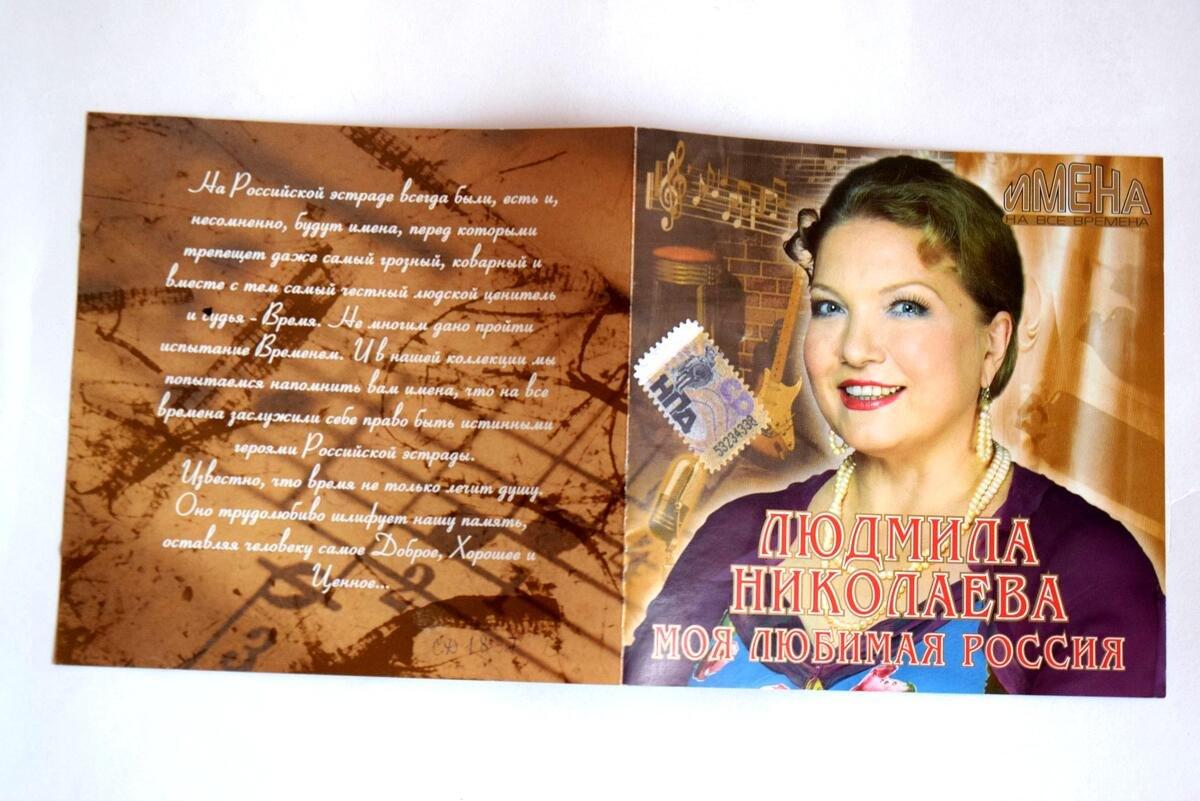 На Российской эстраде всегда были, есть и,
несомненно, будут имена, перед которыми
трепещет даже самый грозный, коварный и
вместе с тем самый честный людской ценитель
и судья - Время. Не многим дано пройти
испытание Временем. И в нашей коллекции мы
попытаемся напомнить вам имена, что на все
времена заслужили себе право быть истинными
героями Российской эстрады.
Известно, что время не только лечит душу.
Оно трудолюбиво шлифует нашу память,
оставляя человеку самое Доброе, Хорошее и
Ценное...
ИМЕНА
НА ВСЕ ВРЕМЕНА
НПА
53234338
ЛЮДМИЛА
НИКОЛАЕВА
МОЯ ЛЮБИМАЯ РОССИЯ